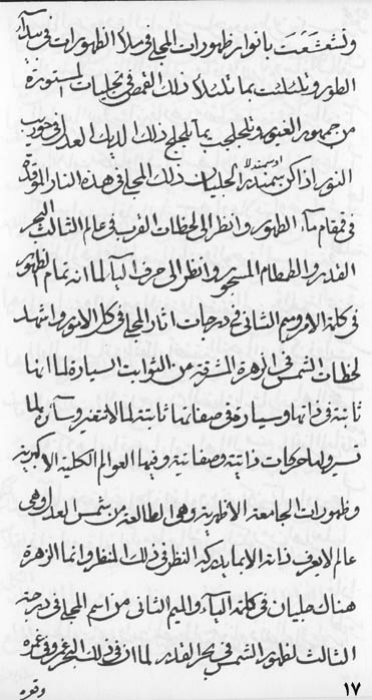 وتشعشعت بانوار ظهورات المجلي في سيناء الظهورات في سيناء
الطور وتلئلئت بما تلئلأ ذلك القمص في تجليات المستورة
من جمهور الغيور وتلجلجت بما تلجلج ذلك الديك العدل في حرب
النور اذا كر بسمندر الجليان ذلك المجلي في هذه النار الموقدة
في قمقام ماء الظهور وانظر الى لحظات القريبة في عالم الثالث البحر
القدر والطمطام المسجور وانظر الى حرف الياء لما انه تمام الظهور
في كلمة الامر وميم الثاني في درجات اثار المجلي في كل الامور واشهد
لحظات الشمس في الزهرة المشرقة من الثوابت السيارة لما انها
ثابتة في ذاتها وسيارة في صفاتها ثابتة لما لا تتغير وسيارة لما
تسير ولها حركات ذاتية وصفاتية وفيها العوالم الكلية الاكبرية
وظهورات الجامعة الاظهرية وهي الطالعة من شمس العدل وهي
عالم لا يعرف ذاته الا بما يدركه النظر في ذلك المنظر وانما الزهرة
هناك جليان في كلمة الياء والميم الثاني من اسم المجلي في درجة
الثالث لظهور الشمس في بحر القدر لما ان في ذلك البحر عمر وفي غمره
وقعره
١٧